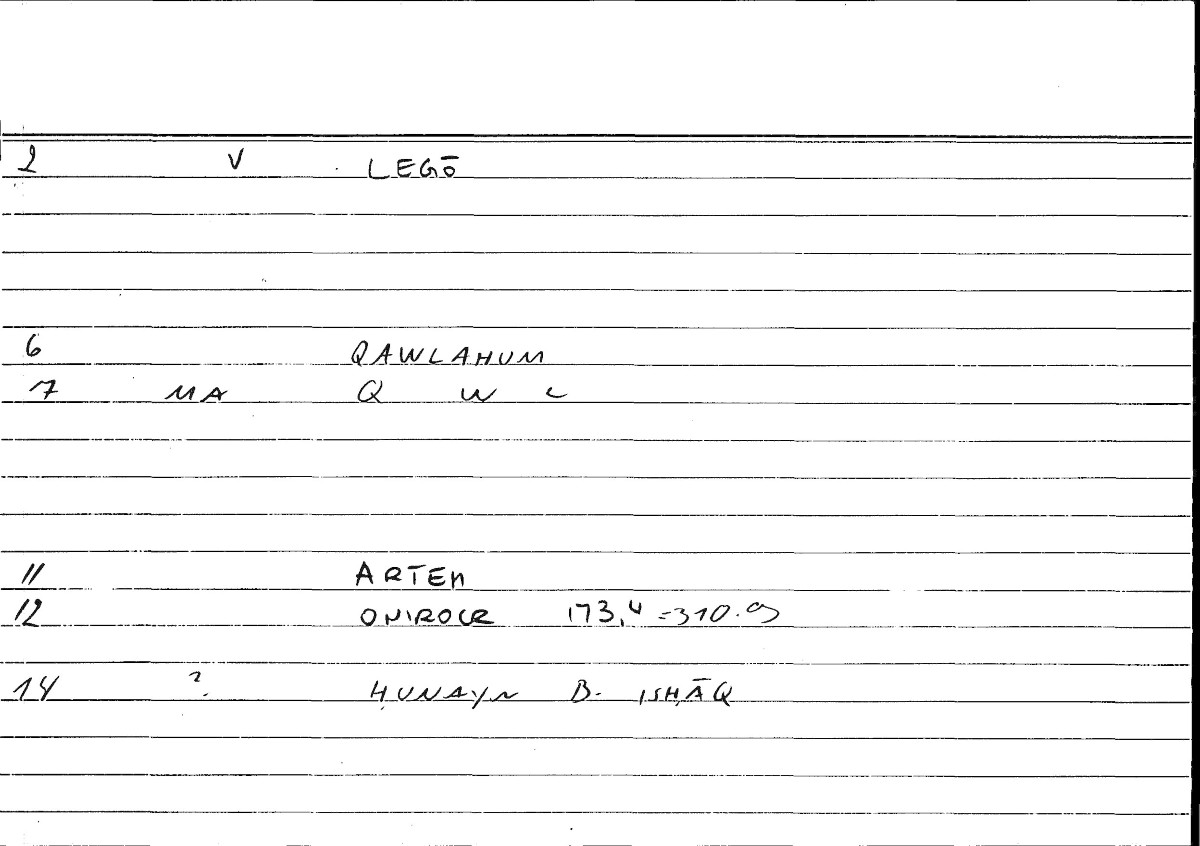 2 V LEGŌ
6 QAWLAHUM
7 MA Q W L
11 ARTEM
12 ONIROCR 173,4 = 310.9
14 ? ḤUNAYN B. ISḤĀQ